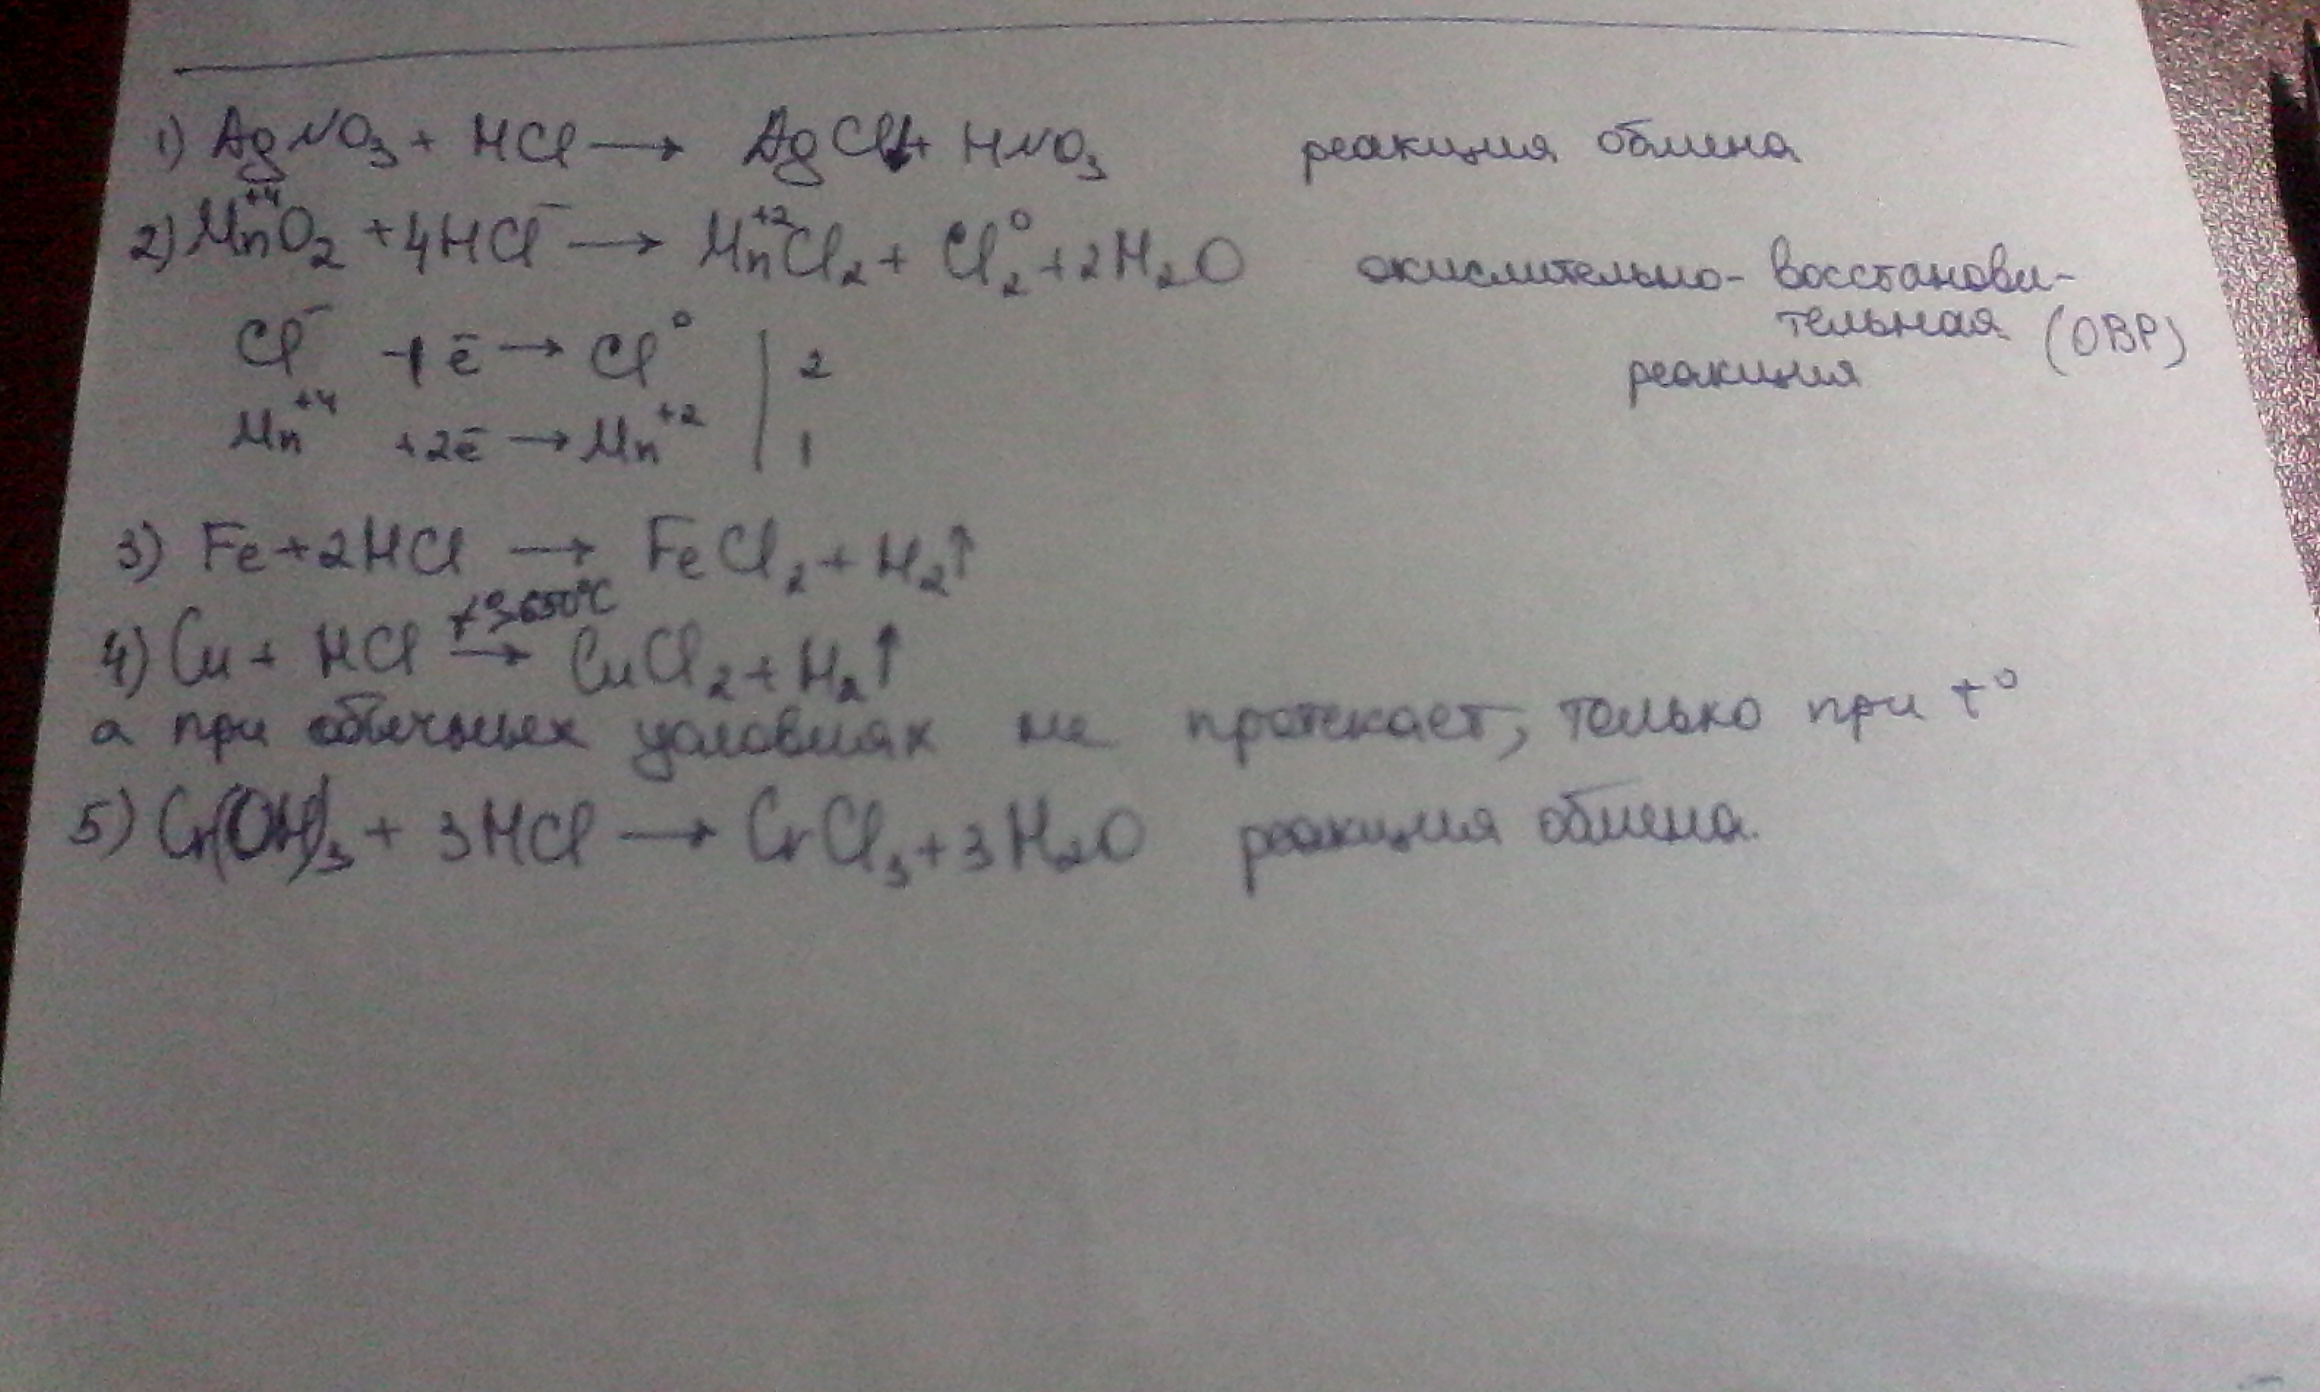 1) AgNO₃ + HCl → AgCl↓ + HNO₃ реакция обмена
2) Mn⁺⁴O₂ + 4HCl⁻ → Mn⁺²Cl₂ + Cl₂⁰ + 2H₂O окислительно-восстанови-
тельная (ОВР)
реакция
Cl⁻ -1ē → Cl⁰ | 2
Mn⁺⁴ +2ē → Mn⁺² | 1
3) Fe + 2HCl → FeCl₂ + H₂↑
4) Cu + HCl → CuCl₂ + H₂↑
а при обычных условиях не протекает, только при t⁰
5) Cr(OH)₃ + 3HCl → CrCl₃ + 3H₂O реакция обмена.